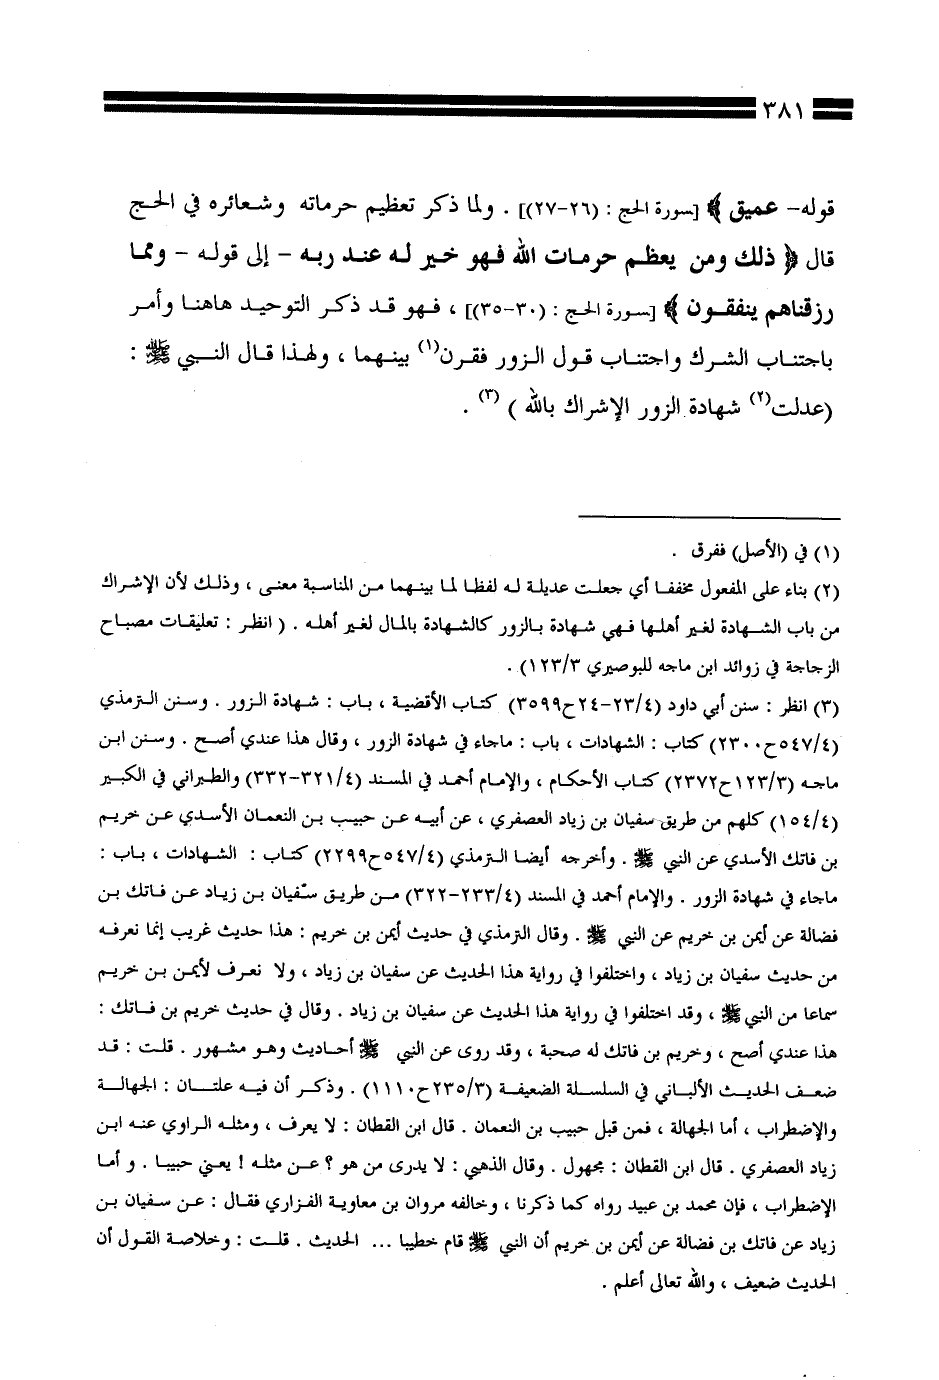 ٣٨١
قوله- عميق ﴾ [سورة الحج : (٢٦-٢٧)] . ولما ذكر تعظيم حرماته وشعائره في الحج
قال ﴿ ذلك ومن يعظم حرمات الله فهو خير له عند ربه - إلى قوله - ومما
رزقناهم ينفقون ﴾ [سورة الحج : (٣٠-٣٥)] ، فهو قد ذكر التوحيد هاهنا وأمر
باجتناب الشرك واجتناب قول الزور فقرن(١) بينهما ، ولهذا قال النبي ﷺ :
(عدلت(٢) شهادة الزور الإشراك بالله )(٣) .
(١) في (الأصل) ففرق .
(٢) بناء على المفعول مخففا أي جعلت عديلة له لفظا لما بينهما من المناسبة معنى ، وذلك لأن الإشراك
من باب الشهادة لغير أهلها فهي شهادة بالزور كالشهادة بالمال لغير أهله . ( انظر : تعليقات مصباح
الزجاجة في زوائد ابن ماجه للبوصيري ١٢٣/٣) .
(٣) انظر : سنن أبي داود (٢٣/٤-٢٤ح٣٥٩٩) كتاب الأقضية ، باب : شهادة الزور . وسنن الترمذي
(٥٤٧/٤ح٢٣٠٠) كتاب : الشهادات ، باب : ماجاء في شهادة الزور ، وقال هذا عندي أصح . وسنن ابن
ماجه (١٢٣/٣ح٢٣٧٢) كتاب الأحكام ، والإمام أحمد في المسند (٣٢١/٤-٣٣٢) والطبراني في الكبير
(١٥٤/٤) كلهم من طريق سفيان بن زياد العصفري ، عن أبيه عن حبيب بن النعمان الأسدي عن خريم
بن فاتك الأسدي عن النبي ﷺ . وأخرجه أيضا الترمذي (٥٤٧/٤ح٢٢٩٩) كتاب : الشهادات ، باب :
ماجاء في شهادة الزور . والإمام أحمد في المسند (٢٣٣/٤-٣٢٢) من طريق سفيان بن زياد عن فاتك بن
فضالة عن أيمن بن خريم عن النبي ﷺ . وقال الترمذي في حديث أيمن بن خريم : هذا حديث غريب إنما نعرفه
من حديث سفيان بن زياد ، واختلفوا في رواية هذا الحديث عن سفيان بن زياد ، ولا نعرف لأيمن بن خريم
سماعا من النبي ﷺ ، وقد اختلفوا في رواية هذا الحديث عن سفيان بن زياد . وقال في حديث خريم بن فاتك :
هذا عندي أصح ، وخريم بن فاتك له صحبة ، وقد روى عن النبي ﷺ أحاديث وهو مشهور . قلت : قد
ضعف الحديث الألباني في السلسلة الضعيفة (٢٣٥/٣ح١١١٠) . وذكر أن فيه علتان : الجهالة
والإضطراب ، أما الجهالة ، فمن قبل حبيب بن النعمان . قال ابن القطان : لا يعرف ، ومثله الراوي عنه ابن
زياد العصفري . قال ابن القطان : مجهول . وقال الذهبي : لا يدرى من هو ؟ عن مثله ! يعني حبيبا . و أما
الإضطراب ، فإن محمد بن عبيد رواه كما ذكرنا ، وخالفه مروان بن معاوية الفزاري فقال : عن سفيان بن
زياد عن فاتك بن فضالة عن أيمن بن خريم أن النبي ﷺ قام خطيبا ... الحديث . قلت : وخلاصة القول أن
الحديث ضعيف ، والله تعالى أعلم .